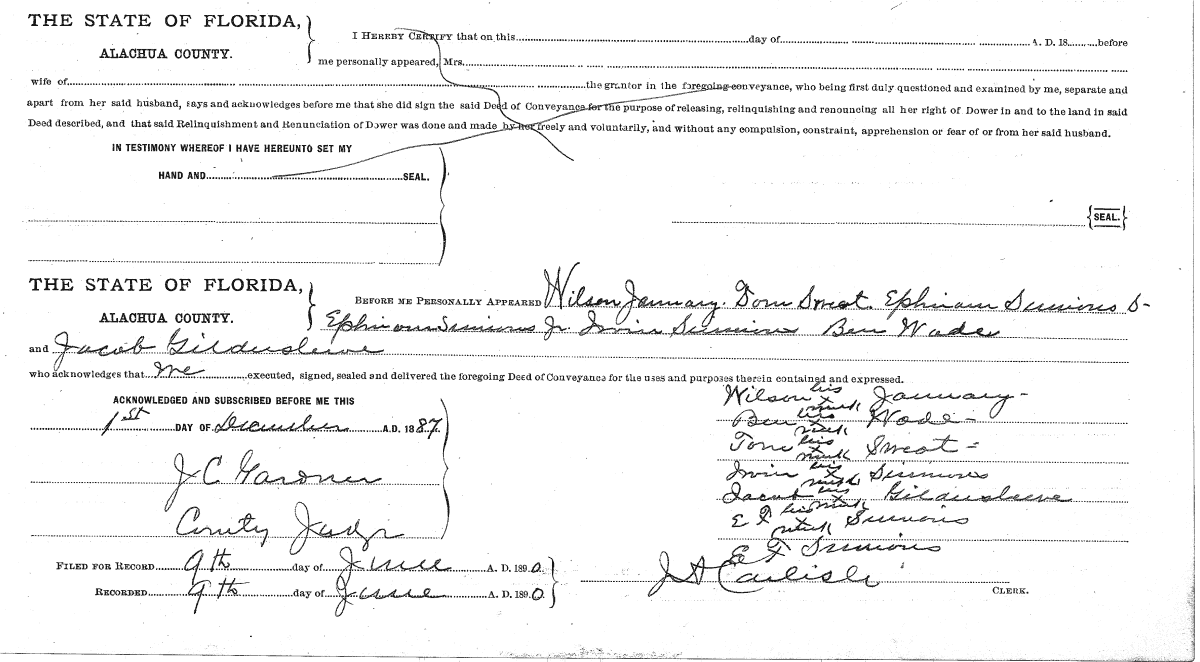 THE STATE OF FLORIDA,
ALACHUA COUNTY.
I HEREBY CERTIFY that on this day of A. D. 18 before
me personally appeared, Mrs.
wife of the grantor in the foregoing conveyance, who being first duly questioned and examined by me, separate and
apart from her said husband, says and acknowledges before me that she did sign the said Deed of Conveyance for the purpose of releasing, relinquishing and renouncing all her right of Dower in and to the land in said
Deed described, and that said Relinquishment and Renunciation of Dower was done and made by her freely and voluntarily, and without any compulsion, constraint, apprehension or fear of or from her said husband.
IN TESTIMONY WHEREOF I HAVE HEREUNTO SET MY
HAND AND SEAL.
SEAL.
THE STATE OF FLORIDA,
ALACHUA COUNTY.
BEFORE ME PERSONALLY APPEARED Wilson January. Tom Sweat. Ephriam Simmons S-
Ephriam Simmons Jr. Irvin Simmons Ben Wade
and Jacob Gildersleeve
who acknowledges that executed, signed, sealed and delivered the foregoing Deed of Conveyance for the uses and purposes therein contained and expressed.
ACKNOWLEDGED AND SUBSCRIBED BEFORE ME THIS
1st DAY OF December A.D. 1887.
J C Gardner
County Judge
Wilson his x mark January -
Ben his x mark Wade -
Tom his x mark Sweat =
Irvin his x mark Simmons
Jacob his x mark Gildersleeve
E F his x mark Simmons
E F Simmons
FILED FOR RECORD 9th day of June A. D. 1890.
RECORDED 9th day of June A. D. 1890.
J A Carlisle
CLERK.